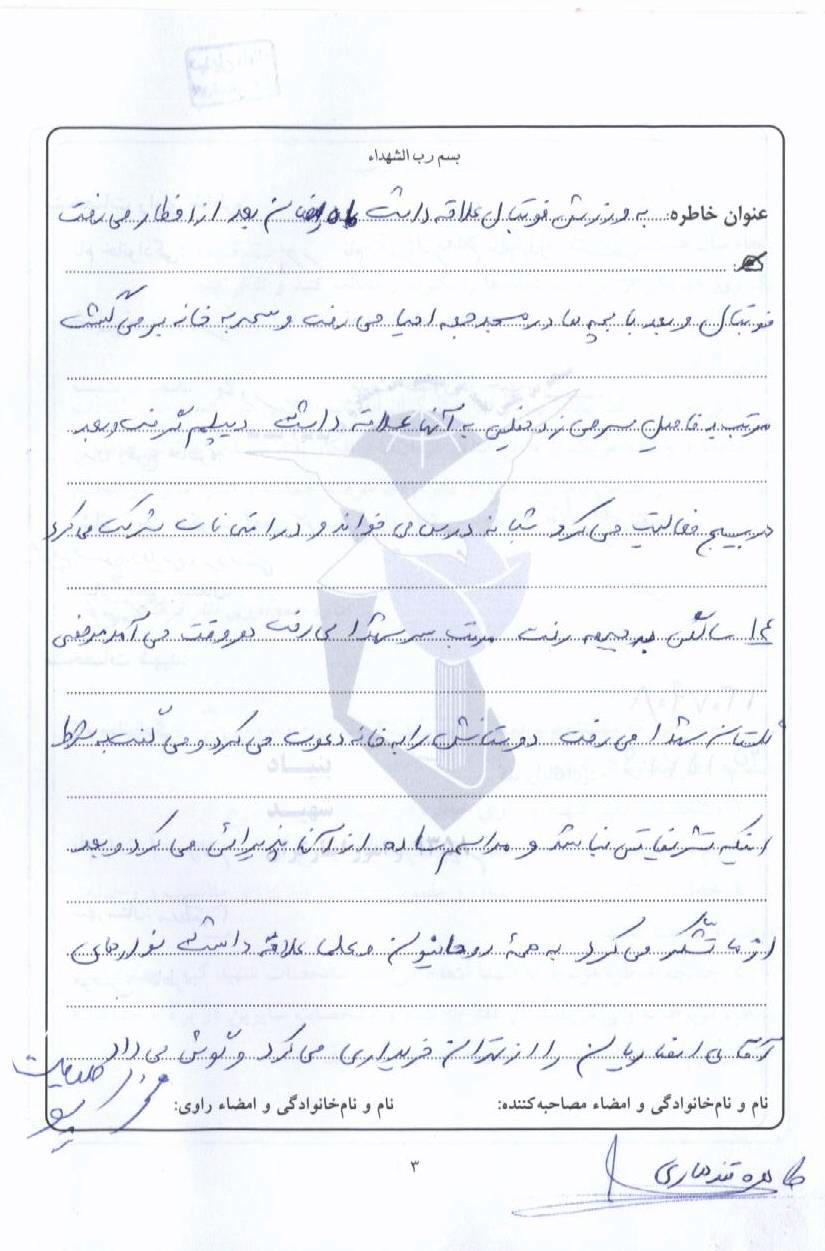 بسم رب الشهداء
عنوان خاطره: به ورزش فوتبال علاقه داشت ماه رمضان بعد از افطار می رفت
فوتبال و بعد با بچه ها در مسجد جمعه احیا می رفت و سحر به خانه بر می گشت
مرتب به فامیل سر می زد خیلی به آنها علاقه داشت دیپلم گرفت و بعد
در بسیج فعالیت می کرد شبانه درس می خواند و در امتحانات شرکت می کرد
۱۴ سالگی به جبهه رفت مرتب سر شهدا می رفت هر وقت می آمد مرخصی
گلستان شهدا می رفت دوستانش را به خانه دعوت می کرد و می گفت به شرط
اینکه تشریفاتی نباشد و مراسم ساده از آنها پذیرائی می کرد و بعد
از ما تشکر می کرد به همهٔ روحانیون و علما علاقه داشت نوارهای
آقای انصاریان را از تهران خریداری می کرد و گوش می داد
نام و نام‌خانوادگی و امضاء مصاحبه‌کننده: نام و نام‌خانوادگی و امضاء راوی:
طاهره قندهاری
۳